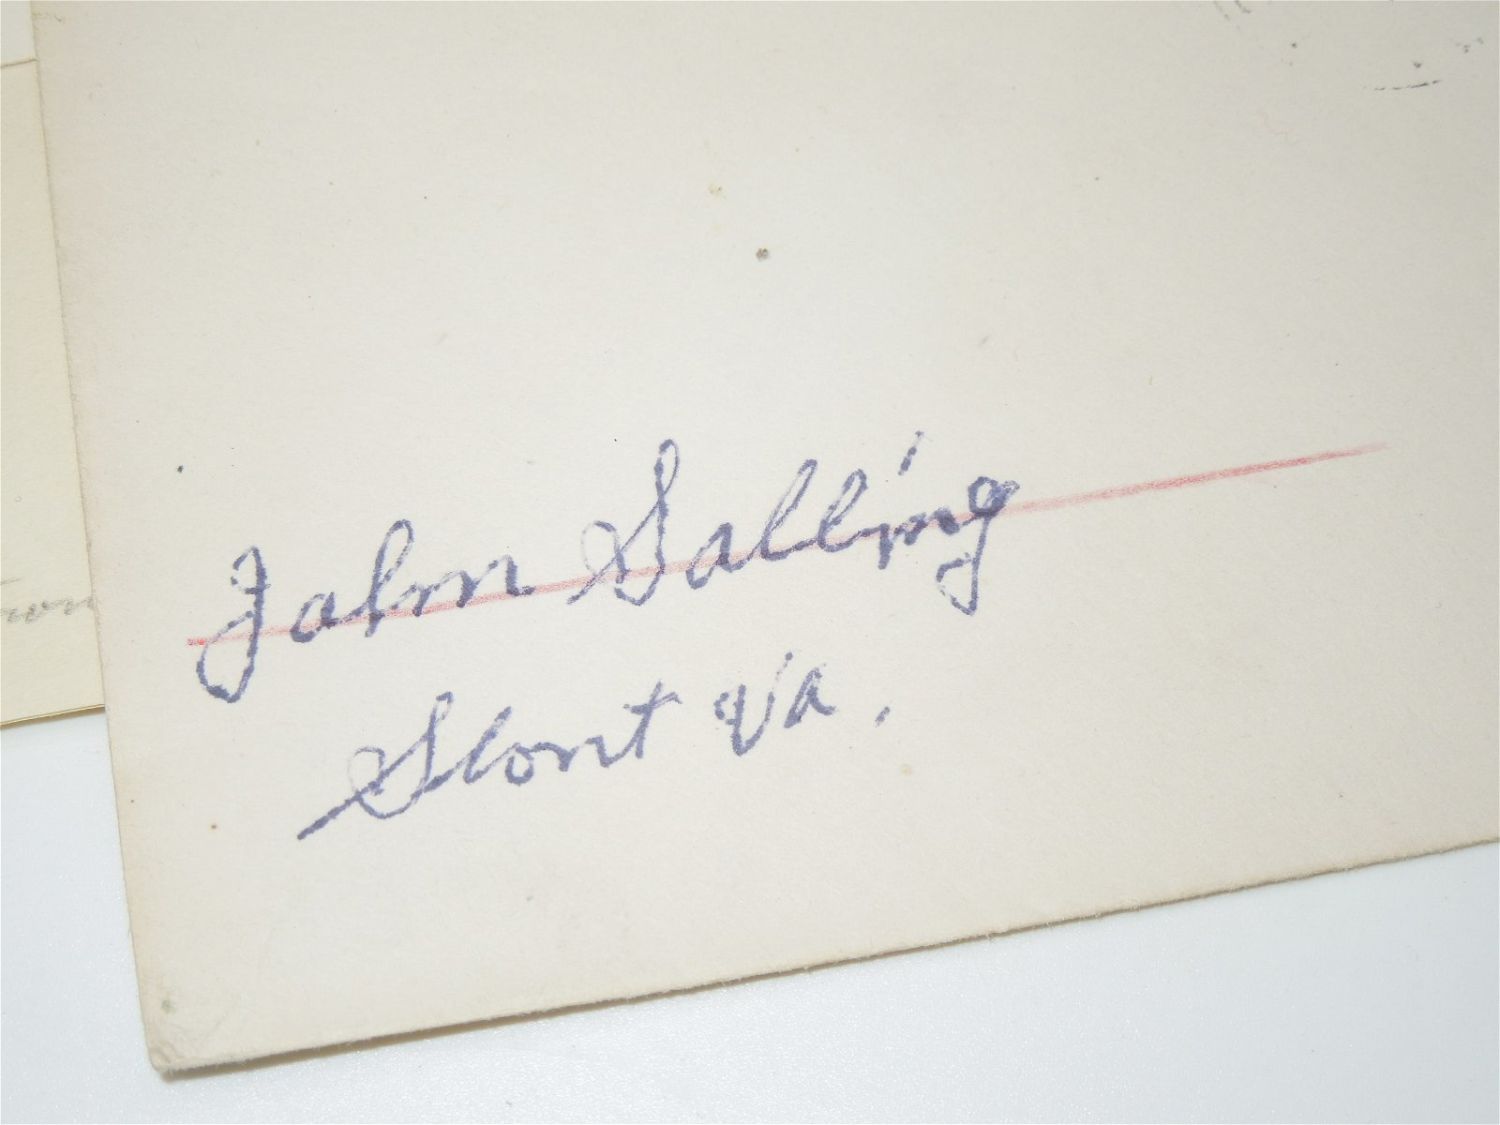 John Salling
Slont Va.